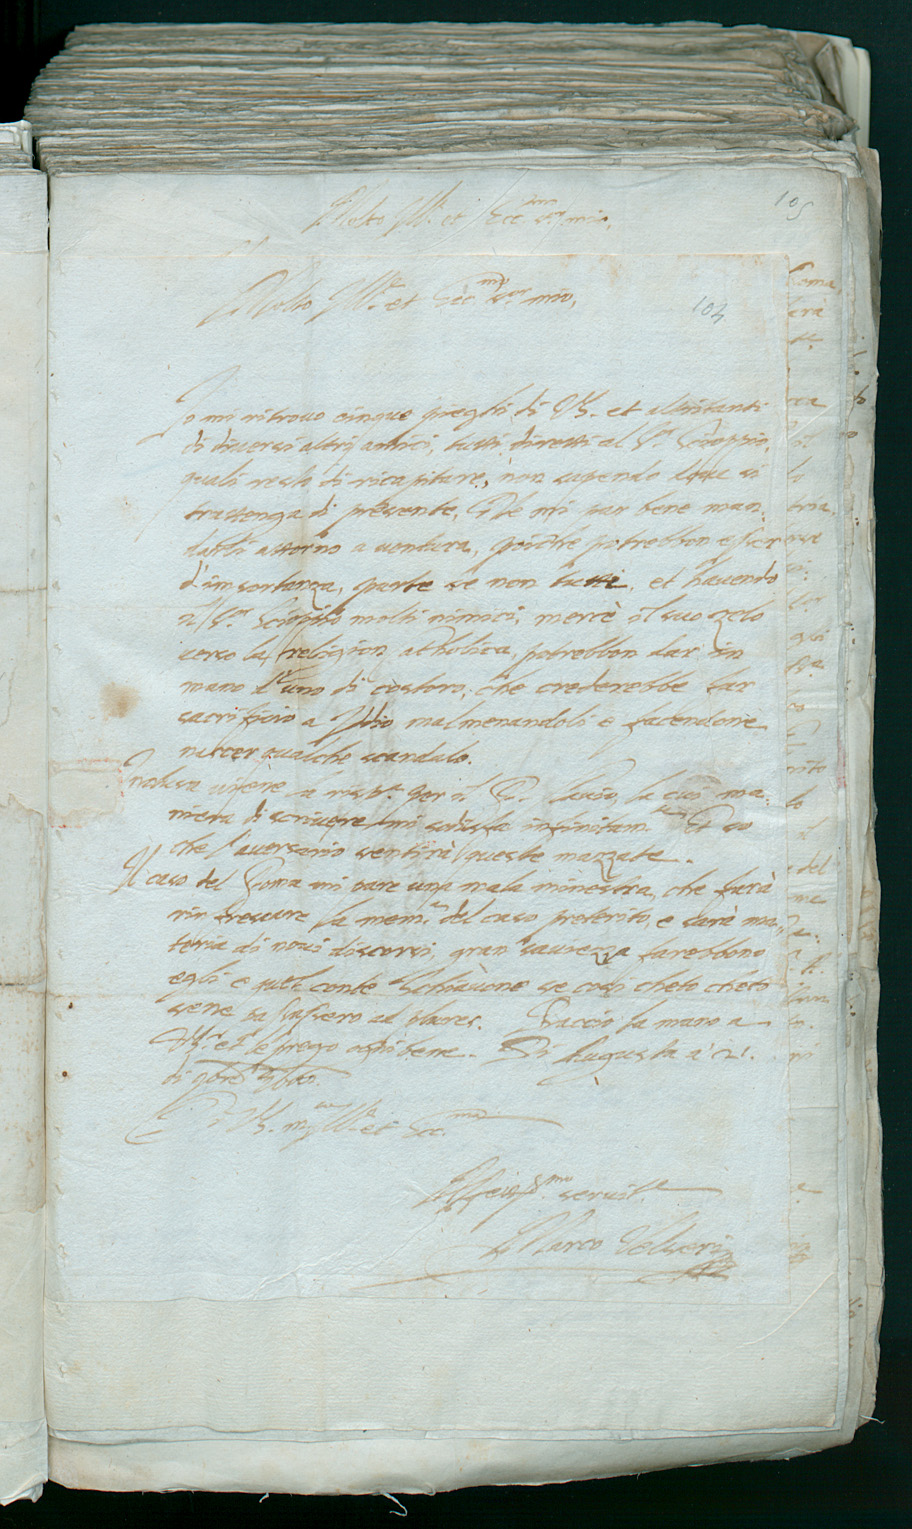 105
Molto Ill.e et Ecc.mo S.or mio,
Molto Ill.e et Ecc.mo S.or mio,
104
Io mi ritrovo cinque pieghi di VS. et altritanti
di diversi altri amici, tutti diretti al S.r Scioppio,
quali resto di ricapitare, non sapendo dove si
trattenga di presente, Nè mi par bene man
darli attorno a ventura, poiche potrebbon esser
d'importanza, parte se non tutti, et havendo
il S.r Scioppio molti nimici, mercè il suo zelo
verso la religion catholica, potrebbon dar in
mano d'uno di costoro, che crederebbe far
sacrificio a Iddio malmenandoli e facendone
nascer qualche scandalo.
Inclusa viene la risp.ta per il la cui ma
niera di scrivere mi sodisfa infinitam.te Et so
che l'aversario sentirà queste mazzate.
Il caso del Roma mi pare una mala minestra, che farà
rinfrescare la mem.a del caso preterito, e sarà ma
teria di novi discorsi, gran saviezza farebbono
egli e quel conte Schiavone se così cheto cheto
sene ad plures. Baccio la mano a
VS. et le prego ogni bene. Di Augusta a' 21.
di
D VS. m. Ill.e et Ecc.ma
Affez.mo servit.e
Marco Velseri